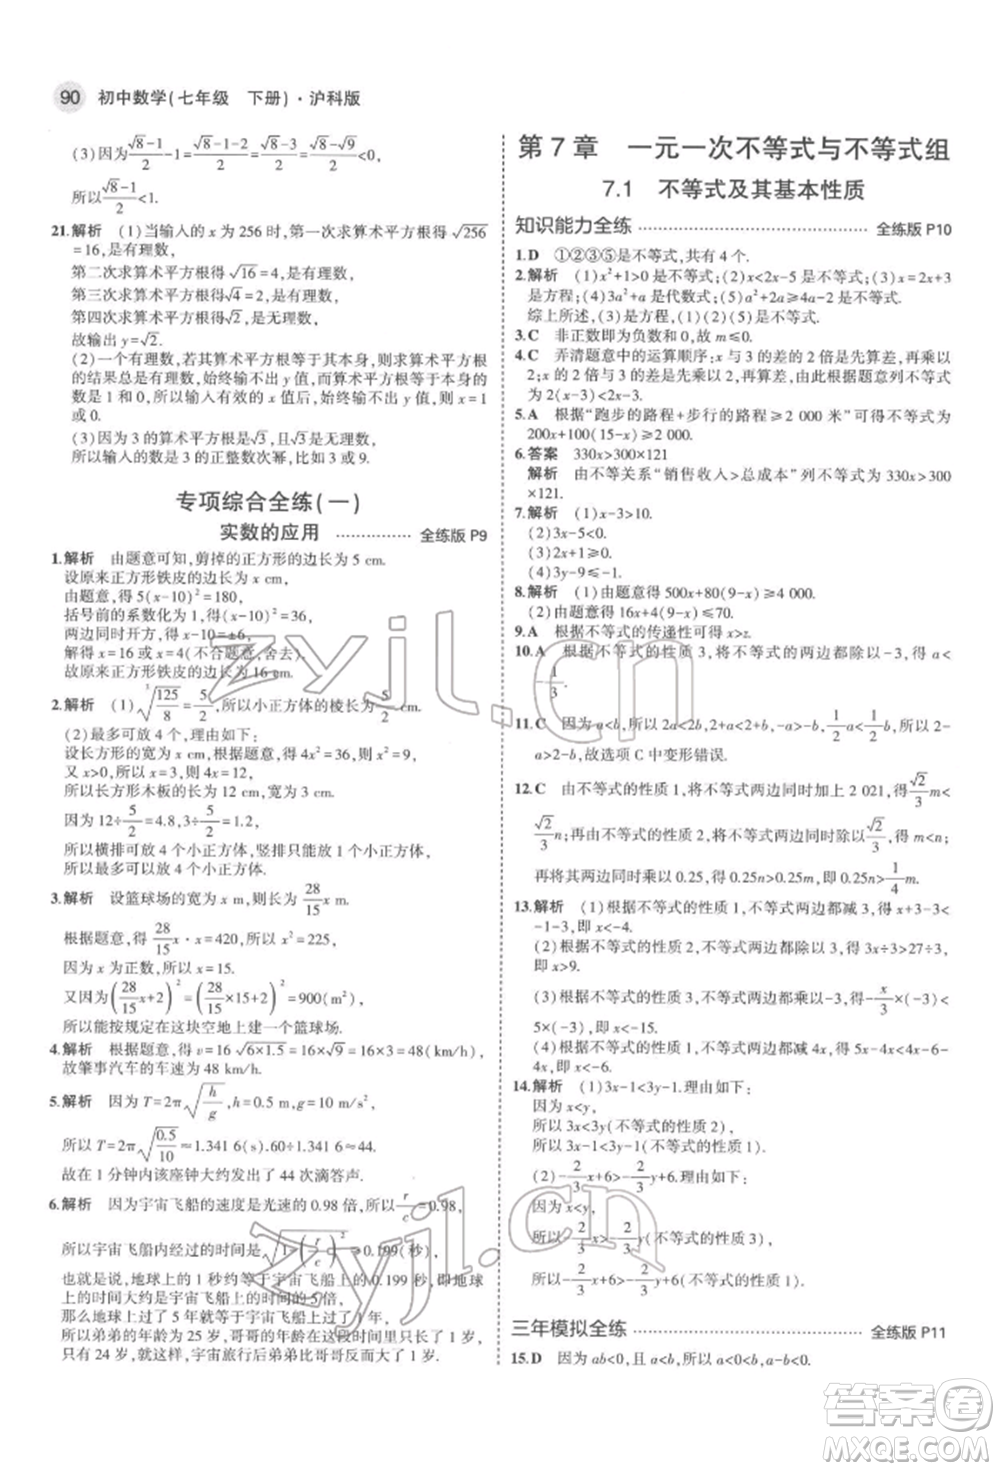 90 初中数学(七年级 下册)·沪科版
(3)因为(√8-1)/2-1=(√8-1-2)/2=(√8-3)/2<0,
所以(√8-1)/2<1.
21.解析 (1)当输入的 x 为 256 时,第一次求算术平方根得√256
=16,是有理数;
第二次求算术平方根得√16=4,是有理数;
第三次求算术平方根得√4=2,是有理数;
第四次求算术平方根得√2,是无理数,
故输出 y=√2.
(2)一个有理数,若其算术平方根等于本身,则求算术平方根
的结果总是有理数,始终输不出 y 值,而算术平方根等于本身的
数是 1 和 0,所以输入有效的 x 值后,始终输不出 y 值时,x=1
或 0.
(3)因为 3 的算术平方根是√3,且√3是无理数,
所以输入的 x 值可以是 3 的正整数次幂,如 3 或 9.
专项综合全练(一)
实数的应用 全练版 P9
1.解析 由题意可知,剪掉的正方形的边长为 5 cm.
设原来正方形铁皮的边长为 x cm,
由题意,得 5(x-10)²=180,
括号前的系数化为 1,得(x-10)²=36,
两边同时开方,得 x-10=±6,
解得 x=16 或 x=4(不合题意,舍去).
故原来正方形铁皮的边长为 16 cm.
2.解析 (1)∛(125/8)=5/2,所以小正方体的棱长为5/2 cm.
(2)最多可放 4 个,理由如下:
设长方形的宽为 x cm,则长为 4x cm,易得 4x²=36,
又 x>0,所以 x=3,所以 4x=12,
所以长方形木板的长为 12 cm,宽为 3 cm,
因为 12÷5/2=4.8,3÷5/2=1.2,
所以横排可放 4 个小正方体,竖排只可放 1 个,
所以最多可放 4 个小正方体.
3.解析 设篮球场的宽为 x m,则长为28/15x m.
根据题意,得28/15x·x=420,所以 x²=225,
因为 x 为正数,所以 x=15.
又因为(28/15x+2)²=(28/15×15+2)²=900(m²),
所以能按规定在这块空地上建一个篮球场.
4.解析 根据题意,得 v=16√(6×1.5)=16×√9=16×3=48(km/h),
故肇事汽车的车速大约为 48 km/h.
5.解析 因为 T=2π√(h/g),h=0.5 m,g=10 m/s²,
所以 T=2π√(0.5/10)≈1.341 6(s).60÷1.341 6≈44.
故在 1 分钟内该座钟大约发出了 44 次滴答声.
6.解析 因为宇宙飞船的速度是光速的 0.98 倍,所以 r/c=0.98,
所以宇宙飞船内经过的时间是√(1-(r/c)²)≈0.199(秒),
也就是说,地球上的 1 秒约等于宇宙飞船上的 0.199 秒,即地球
上的 1 年大约为宇宙飞船上的 0.2 年.
那么地球上过了 5 年,宇宙飞船上大约过了 1 年.
所以弟弟在这段时间里长了 5 岁,哥哥的年龄只长了 1 岁,
弟弟 24 岁,哥哥 23 岁,宇宙旅行后弟弟比哥哥大了 1 岁.
第 7 章 一元一次不等式与不等式组
7.1 不等式及其基本性质
知识能力全练 全练版 P10
1.D ①②③⑤是不等式,共有 4 个.
2.解析 (1)x²+1>0 是不等式;(2)x+2x-5 是不等式;(3)x=2x+3
是方程;(4)3a²+a 是代数式;(5)a²+2a≥4a-2 是不等式.
综上所述,(3)是方程,(1)(2)(5)是不等式.
3.C 非正数即为负数和 0,故 m≤0.
4.C 弄清题意中的运算顺序:x 与 3 的差的 2 倍是先算差,再乘以
2,x 的 2 倍与 3 的差是先乘 2,再算差.由此根据题意列不等式
为 2(x-3)<2x-3.
5.A 根据“跑步的路程+步行的路程≥2 000 米”可得不等式
200x+100(15-x)≥2 000.
6.答案 330x>300×121
解析 由不等关系“销售收入>总成本”列不等式为 330x>300
×121.
7.解析 (1)x-3>10.
(2)3x-5<0.
(3)x+5>0.
(4)3y-9≤-1.
8.解析 (1)由题意得 500x+80(x-1)≥4 000.
(2)由题意得 16x+4(9-x)≤70.
9.A 根据不等式的传递性可得 x>z.
10.A 根据不等式的性质 3,不等式的两边都除以-3,得 a<
-1/3.
11.C 因为 a<b,所以 2a<2b,a+2<b+2,-a>-b,1/2a<1/2b,所以 2-
a>2-b,故选项 C 中变形错误.
12.C 由不等式的性质 1,将不等式两边同时加上 2 021,得√2/3m<
√2/3n;再由不等式的性质 2,将不等式两边同时除以√2/3,得 m<n;
再将两边同时乘以 0.25,得 0.25n>0.25m,即 0.25n>1/4m.
13.解析 (1)根据不等式的性质 1,不等式两边都减 3,得 x+3-3<
-1-3,即 x<-4.
(2)根据不等式的性质 2,不等式两边都除以 3,得 3x÷3>27÷3,
即 x>9.
(3)根据不等式的性质 3,不等式两边都乘以-3,得-x/3×(-3)<
5×(-3),即 x<-15.
(4)根据不等式的性质 1,不等式两边都减去 4x,得 5x-4x<4x-6
-4x,即 x<-6.
14.解析 (1)3x-1<3y-1.理由如下:
因为 x<y,
所以 3x<3y(不等式的性质 2),
所以 3x-1<3y-1(不等式的性质 1).
(2)-2/3x+6>-2/3y+6.理由如下:
因为 x<y,
所以-2/3x>-2/3y(不等式的性质 3),
所以-2/3x+6>-2/3y+6(不等式的性质 1).
三年模拟全练 全练版 P11
15.D 因为 ab<0,且 a<b,所以 a<0<b,a-b<0.
zyjl.cn
zyjl.cn
作业精灵
答案圈
MXQE.COM